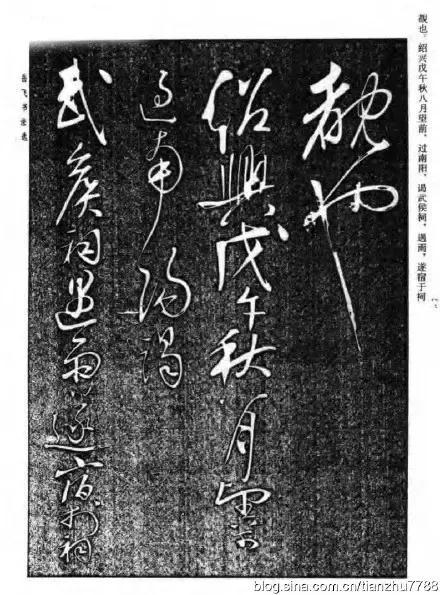 覩也。绍兴戊午秋八月望前，过南阳，谒武侯祠，遇雨，遂宿于祠
覩也
紹興戊午秋八月望前
過南陽謁
武侯祠遇雨遂宿於祠
岳飞书法选
blog.sina.com.cn/tianzhu7788